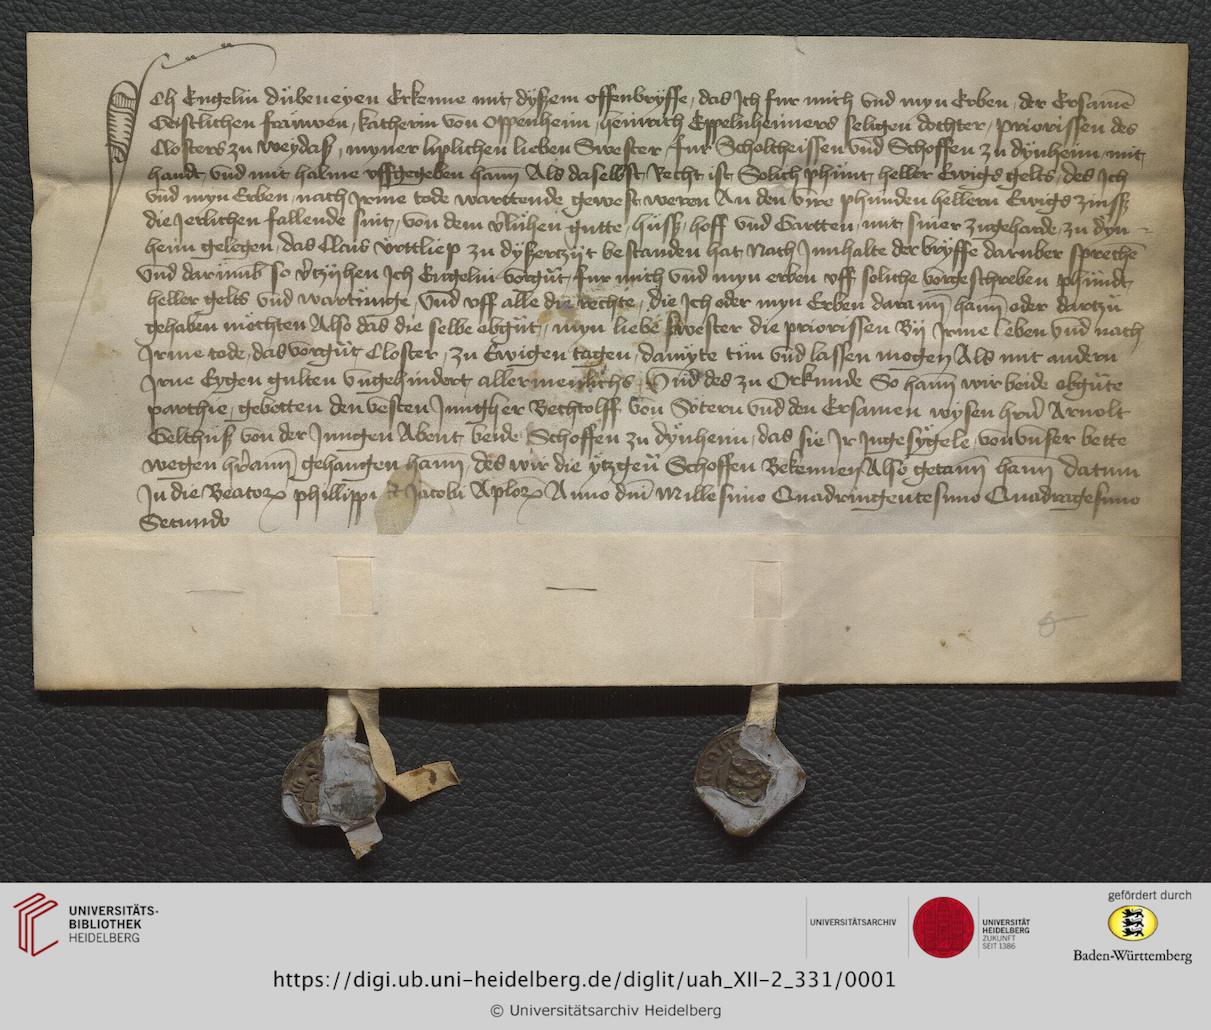 Ich Engelin dübeneyen Erkenne mit dyßem offenbryffe, das Ich fur mich vnd myn Erben, der Ersamē
Geistlichen frauwen, katherin von Oppenheim, heinrich Eppelnheimers seligen dochter, priorissen des
Closters zu weydaß, myner liplichen lieben Swester, fur Scholtheissen vnd Schoffen zu dÿnheim, mit
handt, vnd mit halme vffgegeben hann Als daselbst Recht ist Solich phunt, heller Ewigs gelts, des Ich
vnd myn Erben, nach Irme tode warttende gewest weren An den vire phunden hellern Ewigs zinß
die Jerlichen fallende sint, von dem gutte, huß, hoff vnd Gartten, mit siner zugehorde, zu dÿn-
heim gelegen, das Claus zu dyßerzyt bestanden hat, Nach Innhalte der bryffe daruber sprechē
Vnd darumb so v'tzyhen Ich Engelin vorgūt, fur mich vnd myn erben vff soliche vorgeschreben phundt,
heller gelts vnd wartunge, Vnd vff alle die Rechte, die Ich oder myn Erben daran hann oder dartzu
gehaben mochten Also das die selbe obgūt, myn liebe swester die priorissen Bij Irme leben vnd nach
Irme tode, das vorgūt Closter, zu Ewigen tagen, damyte tun vnd lassen mogen Als mit andern
Irne Eygen gulten vngehindert allermenlichs, Vnd des zu Orkunde So hann wir beide obgūte
parthie, gebetten den vesten Juncher Bechtolff von Sotern vnd den Ersamen wysen hern Arnolt
Gelthuß von der Jungen Abent, beide Schoffen zu dÿnheim, das sie Ir Ingesÿgele, von vnser bette
wegen hir'ann gehangen hann, des wir die ytzgen Schoffen Bekennen Also getann hann datum
In die Beatorꝝ phillippi et Jacobi Aplorꝝ Anno dnī Millesimo Quadringentesimo Quadragesimo
Secundo
UNIVERSITÄTS-
BIBLIOTHEK
HEIDELBERG
UNIVERSITÄTSARCHIV
UNIVERSITÄT
HEIDELBERG
ZUKUNFT
SEIT 1386
gefördert durch
Baden-Württemberg
https://digi.ub.uni-heidelberg.de/diglit/uah_XII-2_331/0001
© Universitätsarchiv Heidelberg